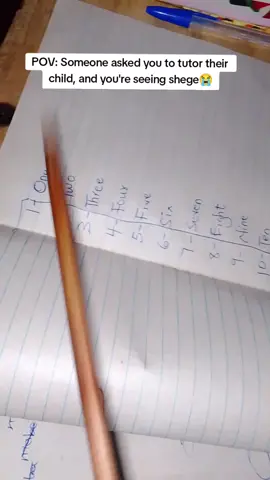 POV: Someone asked you to tutor their
child, and you're seeing shege😭
1- One
Two
3- Three
4- Four
5- Five
6- Six
7- Seven
8- Eight
9- Nine
10- Ten